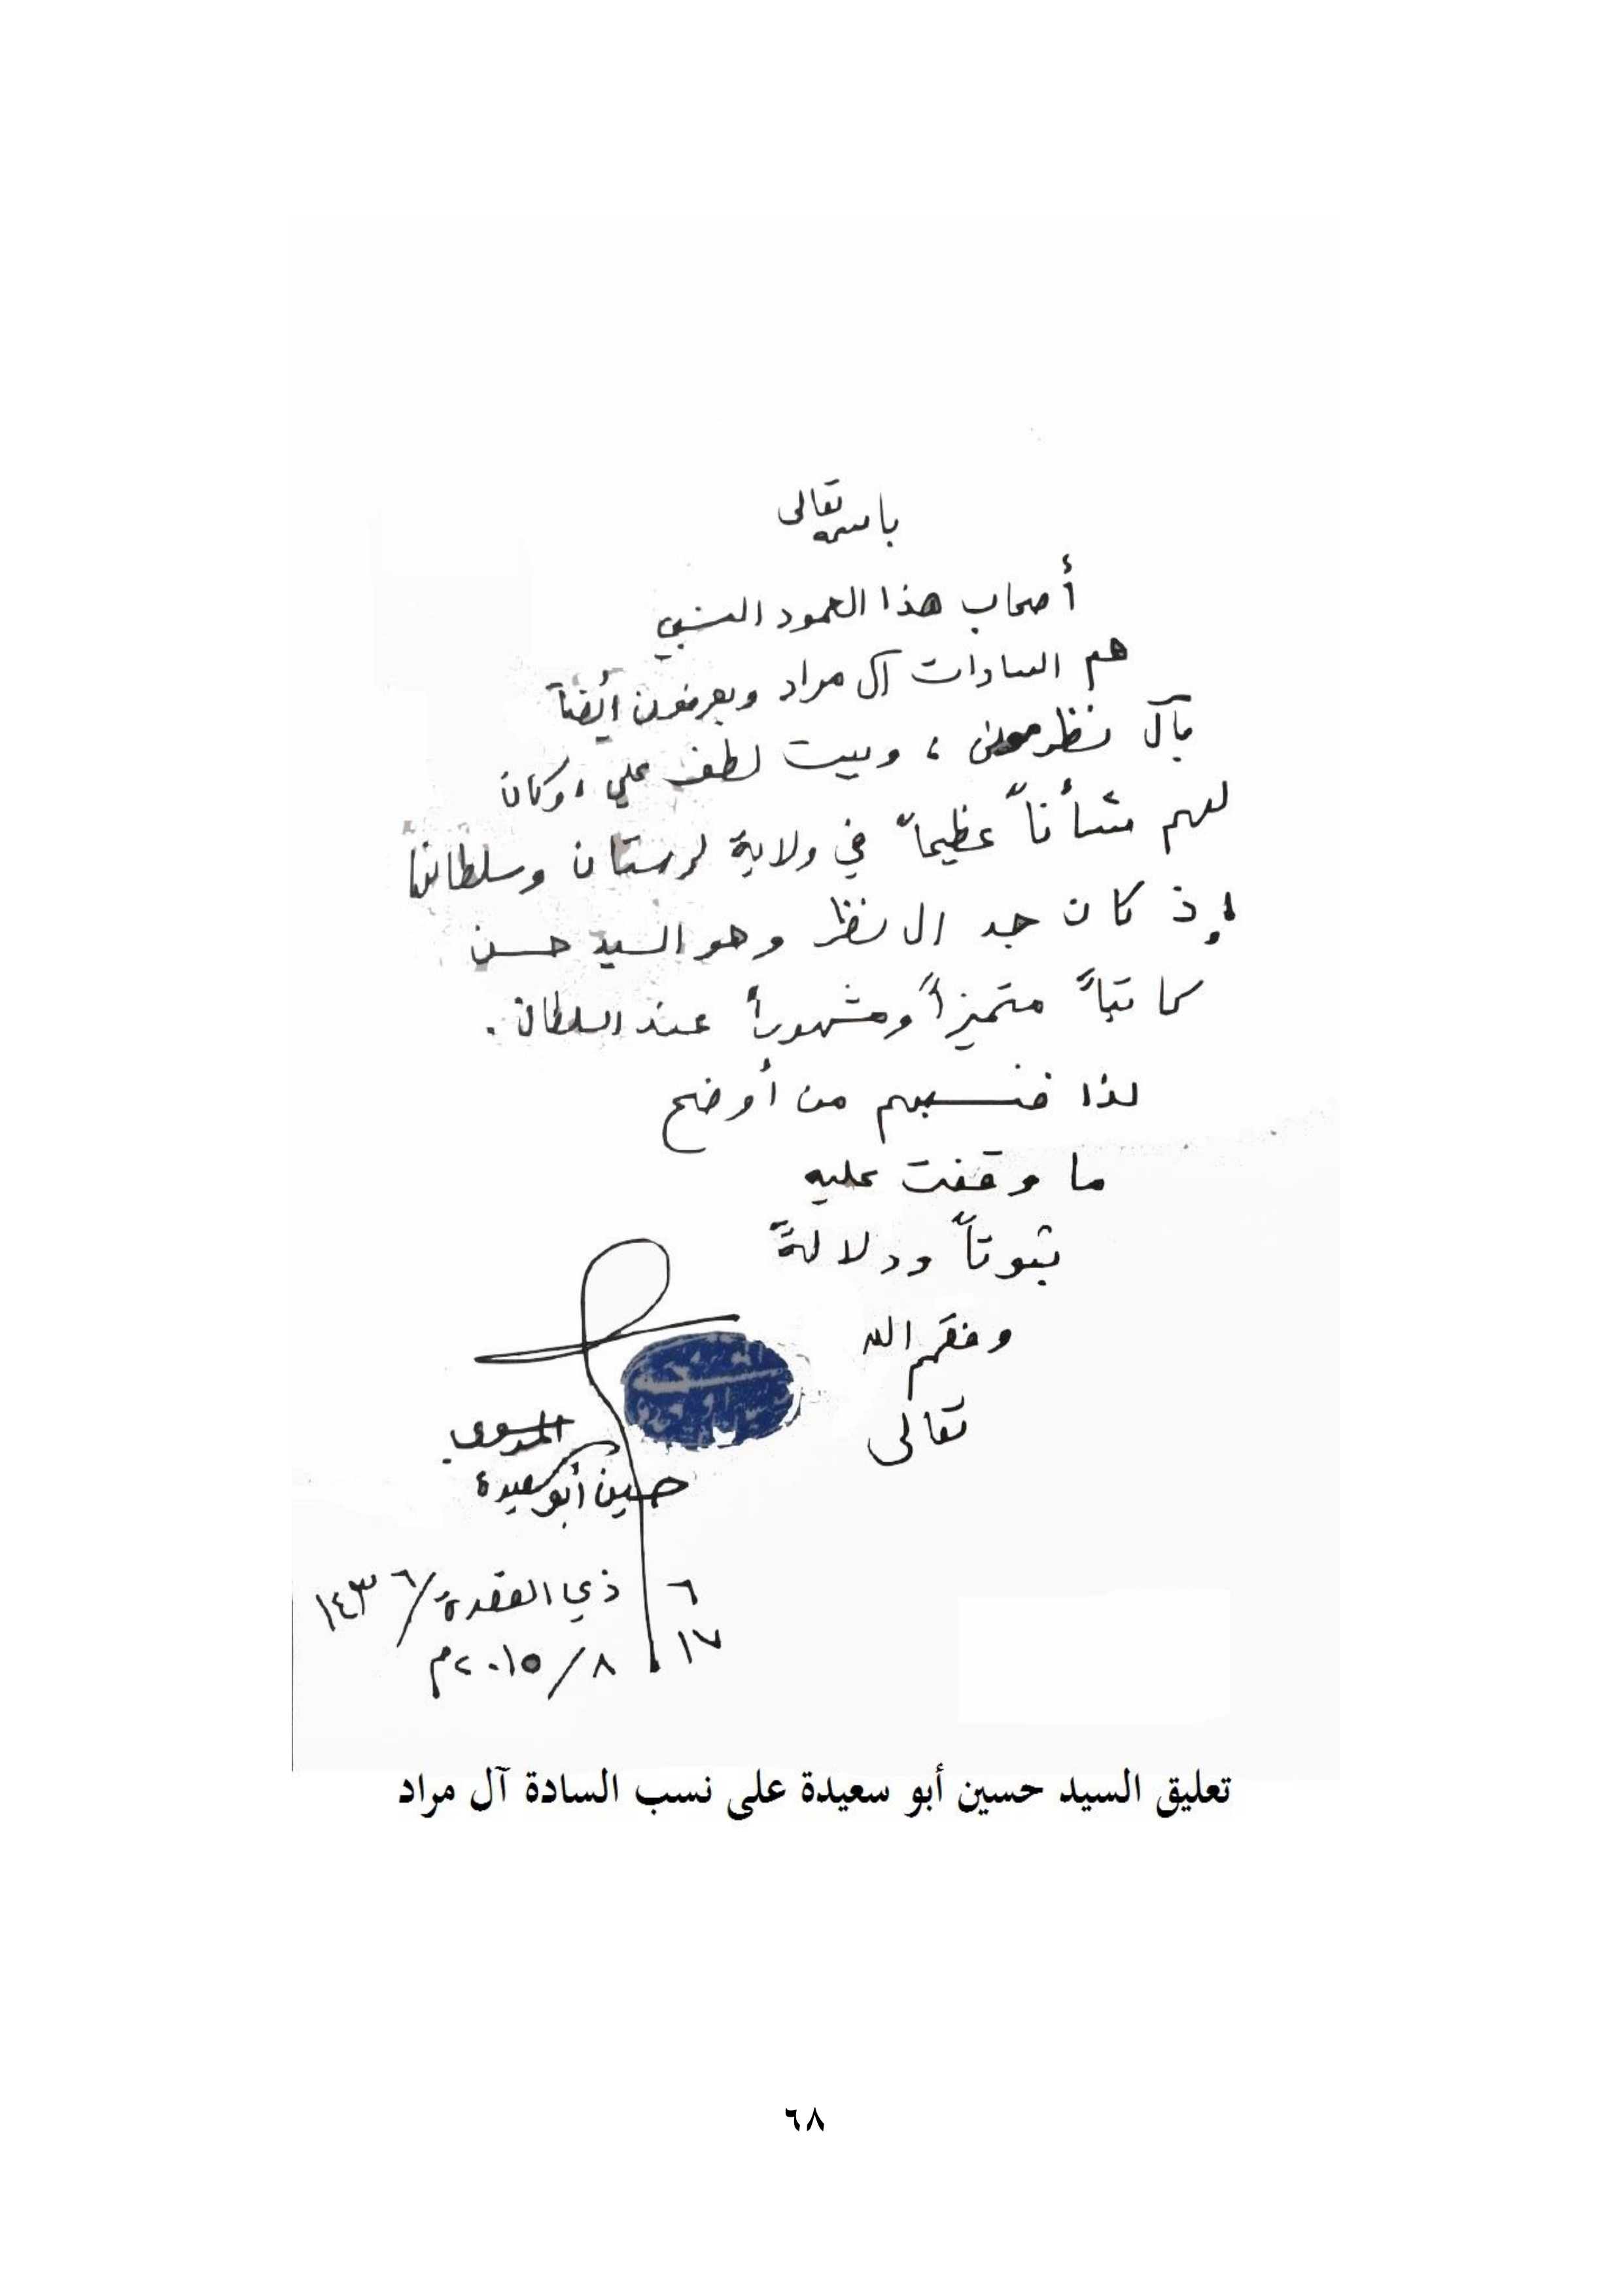 باسمه تعالى
أصحاب هذا العمود النسبي
هم السادات آل مراد ويعرفون أيضاً
بآل نظر ، وبيت لطف علي ، وكان
لهم شأناً عظيماً في ولاية لرستان وسلطانها
إذ كان جد ال نظر وهو السيد حسن
كاتباً متميزاً ومشهوراً عند السلطان .
لذا فنسبهم من أوضح
ما وقفت عليه
ثبوتاً ودلالةً
وفقهم الله
تعالى
الموسوي
حسين أبو سعيدة
٦ ذي القعدة / ١٤٣٦
١٧ / ٨ / ٢٠١٥م
تعليق السيد حسين أبو سعيدة على نسب السادة آل مراد
٦٨